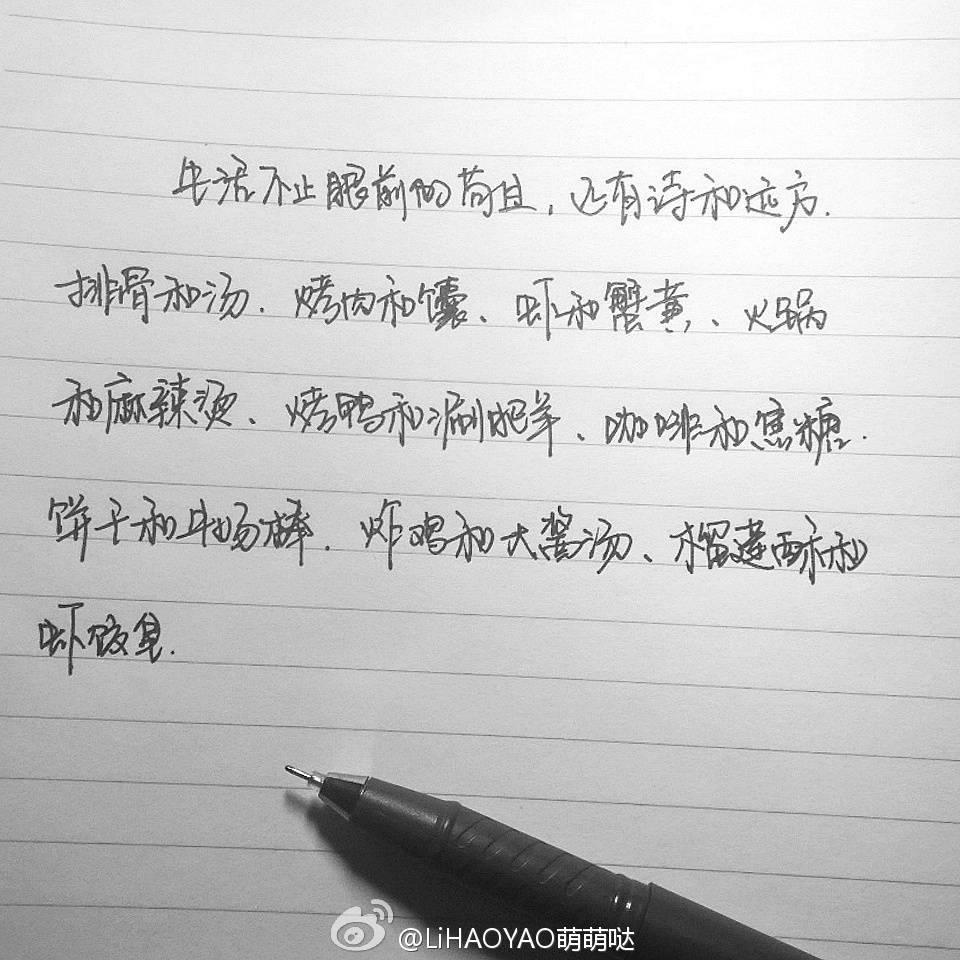 生活不止眼前的苟且,还有诗和远方.
排骨和汤、烤肉和馕、虾和蟹黄、火锅
和麻辣烫、烤鸭和涮肥羊、咖啡和焦糖.
饼干和牛奶棒、炸鸡和大酱汤、榴莲酥和
虾饺皇.
@LiHAOYAO萌萌哒